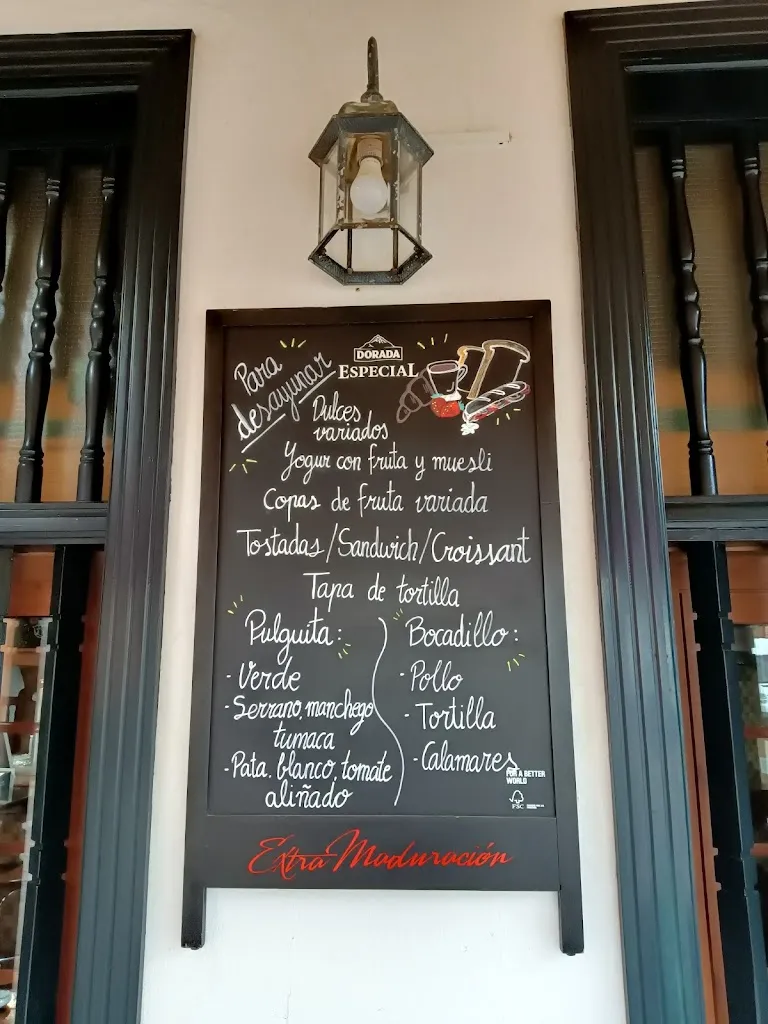 DORADA
ESPECIAL
Para
desayunar
Dulces
variados
Yogur con fruta y muesli
Copas de fruta variada
Tostadas/Sandwich/Croissant
Tapa de tortilla
Pulguita:
- Verde
- Serrano, manchego
tumaca
- Pata, blanco, tomate
aliñado
Bocadillo:
- Pollo
- Tortilla
- Calamares
FOR A BETTER
WORLD
FSC
Extra Maduración